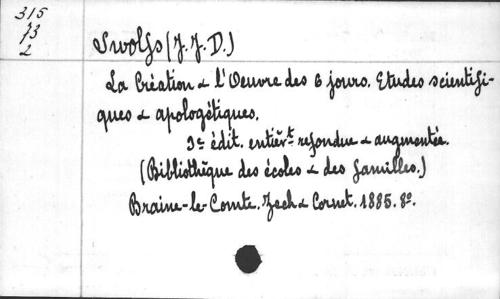 315
73
2
Swolfs (J. J. D.)
La Création & l'Oeuvre des 6 jours. Etudes scientifi-
ques & apologétiques.
3e édit. entièrt refondue & augmentée.
(Bibliothèque des écoles & des familles.)
Braine-le-Comte. Zech & Cornet. 1885. 8o.